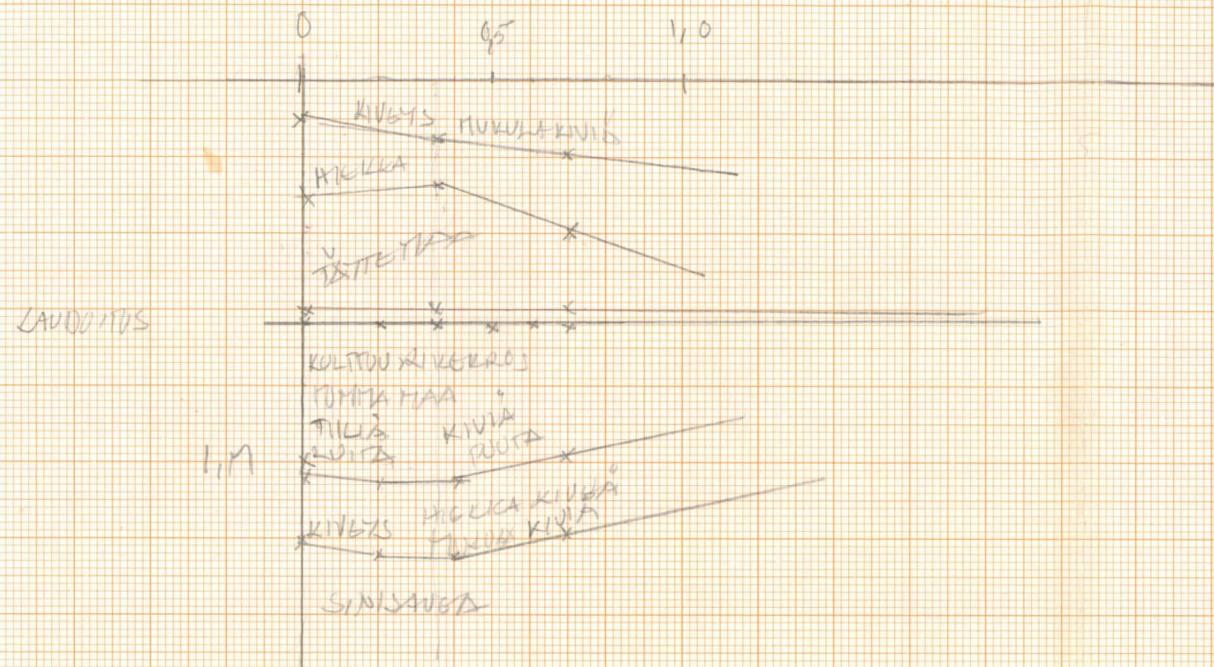 0 0,5 1,0
KIVEYS MUKULAKIVIÄ
HIEKKA
TÄYTEMAA
LAUDOITUS
KULTTUURIKERROS
TUMMA MAA
TIILIÄ KIVIÄ
LUITA PUUTA
1,M
KIVEYS HIEKKA KIVEÄ
KIVIÄ
SINISAVEA